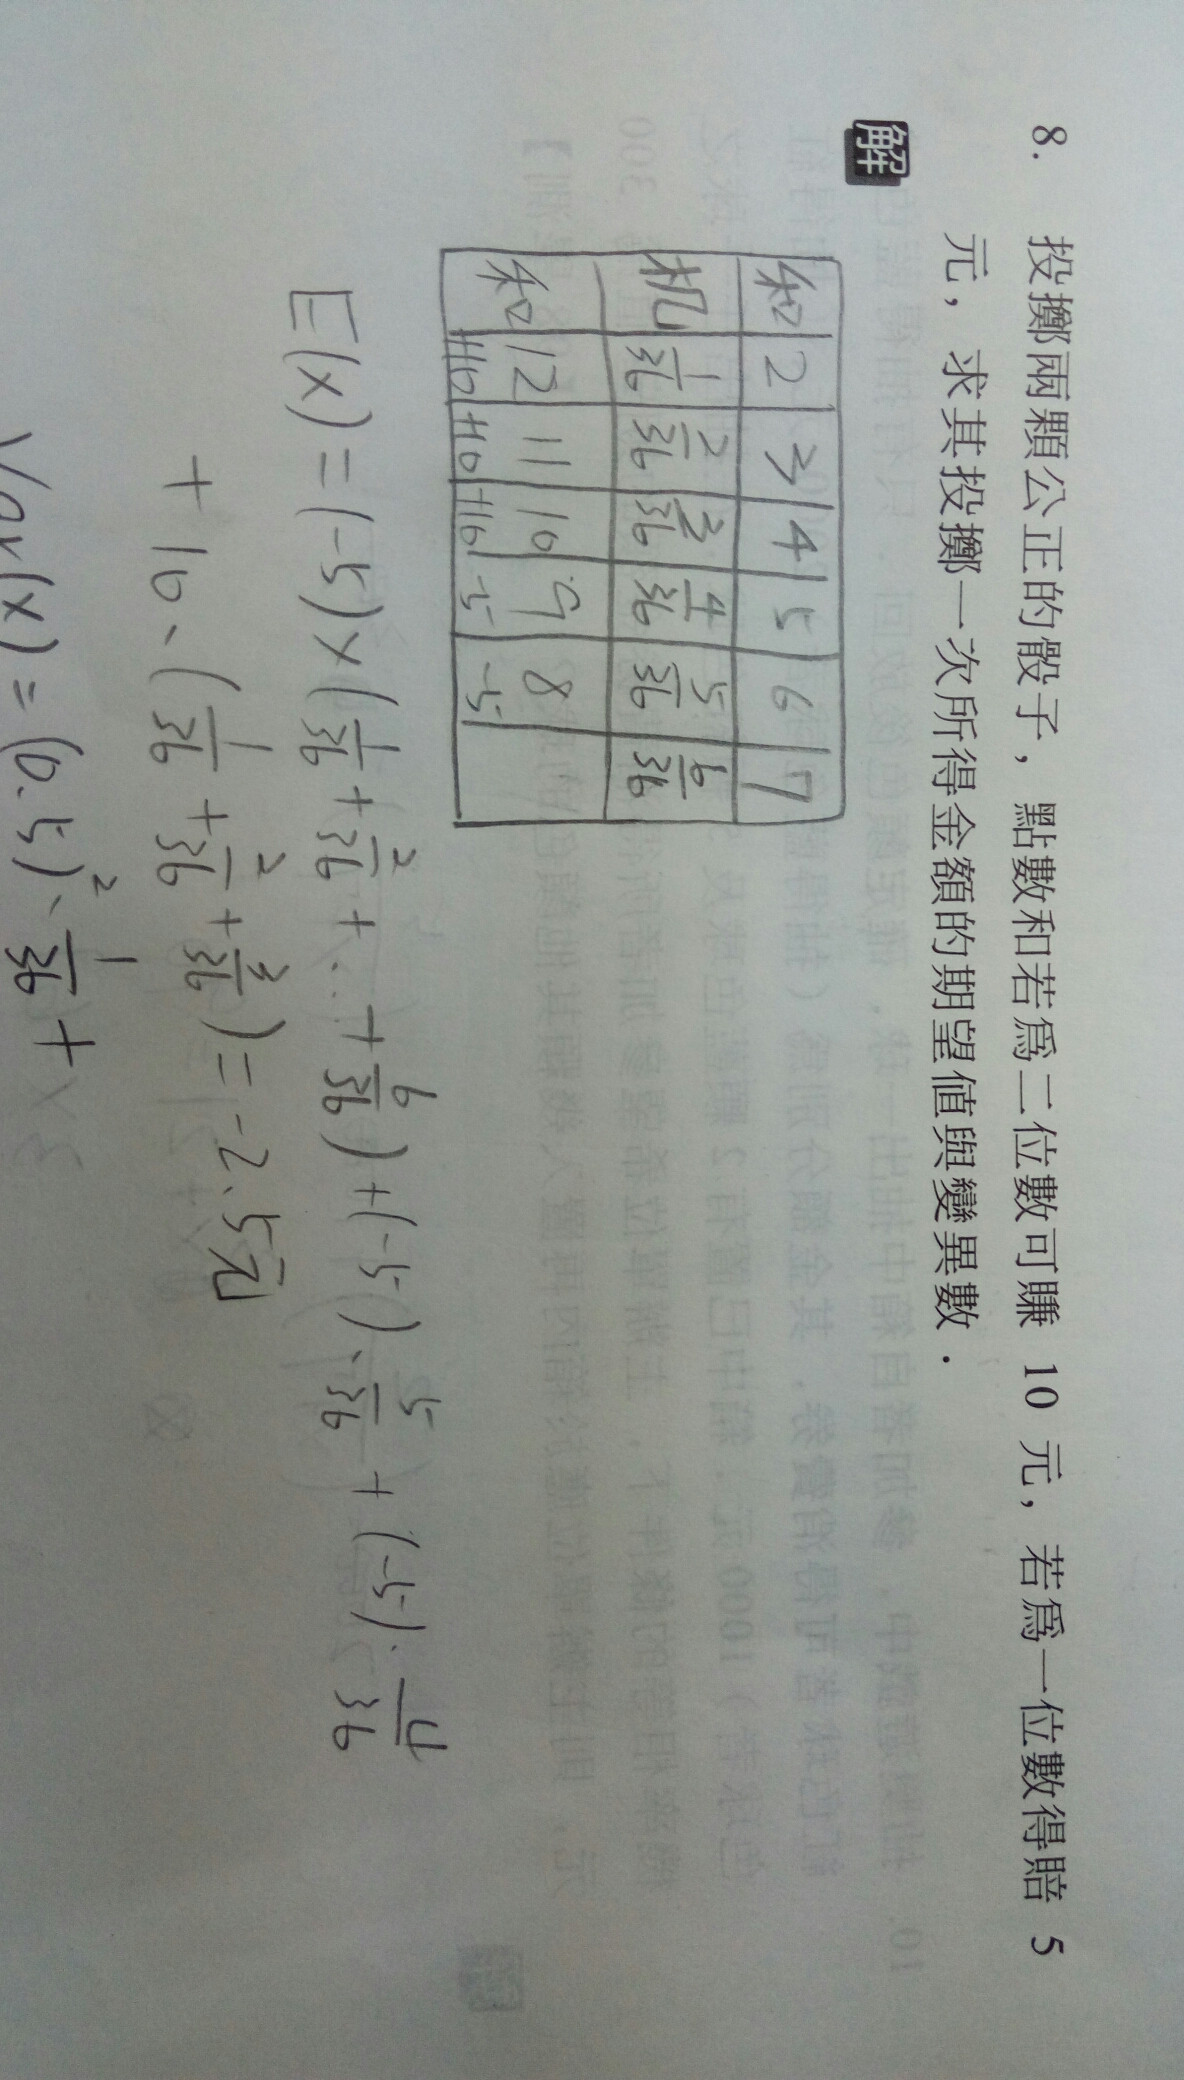 8. 投擲兩顆公正的骰子，點數和若爲二位數可賺 10 元，若爲一位數得賠 5
元，求其投擲一次所得金額的期望值與變異數．
解
和 2 3 4 5 6 7
机 1/36 2/36 3/36 4/36 5/36 6/36
和 12 11 10 9 8
+10 +10 +10 -5 -5
E(x) = (-5) × (1/36 + 2/36 + ... + 6/36) + (-5) · 5/36 + (-5) · 4/36
+ 10 · (1/36 + 2/36 + 3/36) = -2.5元
Var(x) = (0.5)² · 1/36 +